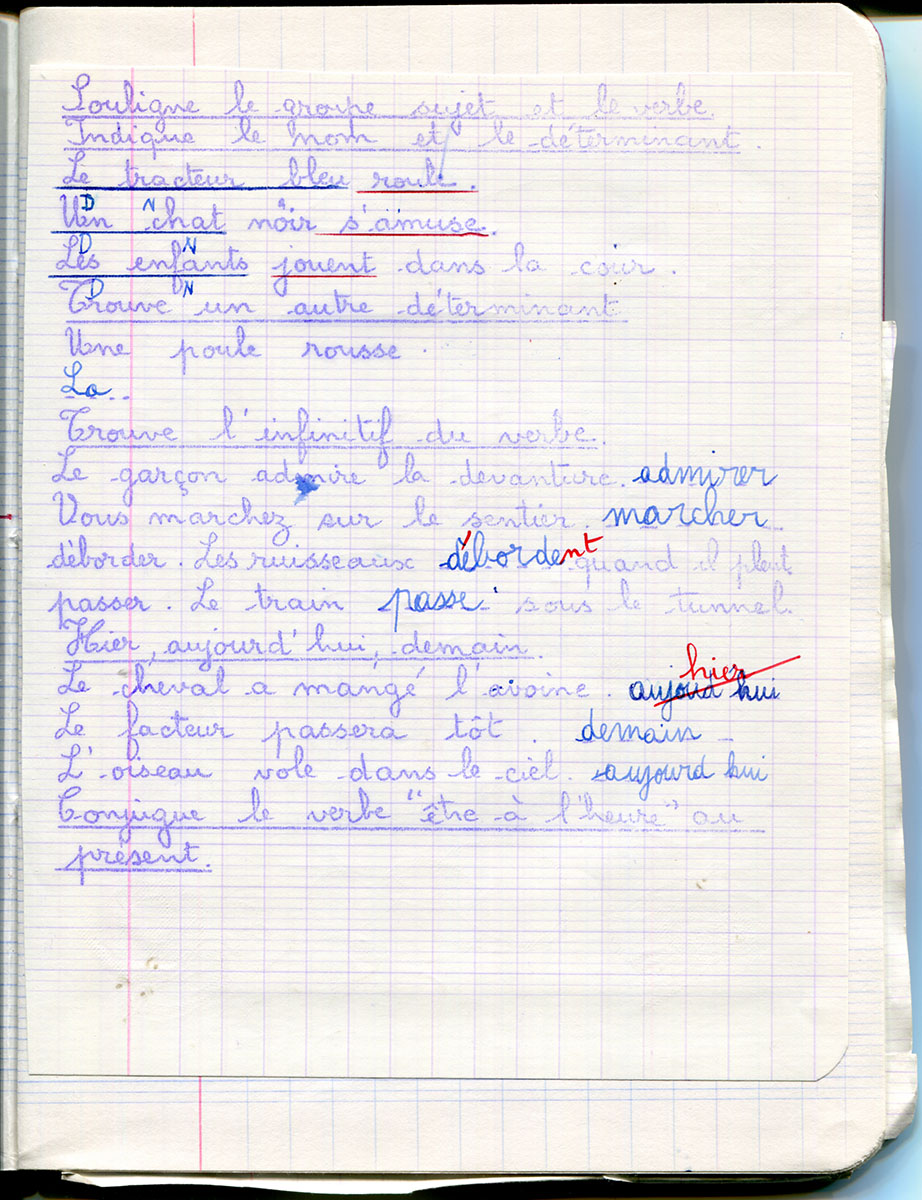 Souligne le groupe sujet et le verbe.
Indique le nom et le déterminant.
Le tracteur bleu roule.
D N
Un chat noir s'amuse.
D N
Les enfants jouent dans la cour.
D N
Trouve un autre déterminant
Une poule rousse.
La..
Trouve l'infinitif du verbe.
Le garçon admire la devanture. admirer
Vous marchez sur le sentier. marcher
déborder. Les ruisseaux débordent quand il pleut.
passer. Le train passe sous le tunnel.
Hier, aujourd'hui, demain.
hier
Le cheval a mangé l'avoine. aujourd hui
Le facteur passera tôt. demain
L'oiseau vole dans le ciel. aujourd hui
Conjugue le verbe "être à l'heure" au
présent.